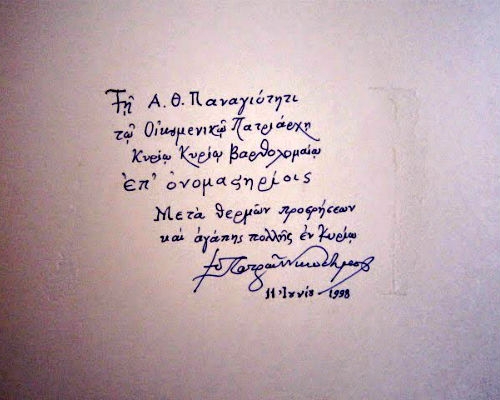 Τῇ Α.Θ. Παναγιότητι
τῷ Οἰκουμενικῷ Πατριάρχῃ
Κυρίῳ Κυρίῳ Βαρθολομαίῳ
ἐπ' ὀνομαστηρίοις
Μετὰ θερμῶν προσρήσεων
καὶ ἀγάπης πολλῆς ἐν Κυρίῳ
Πατρῶν Νικόδημος
11 Ἰουνίου 1998